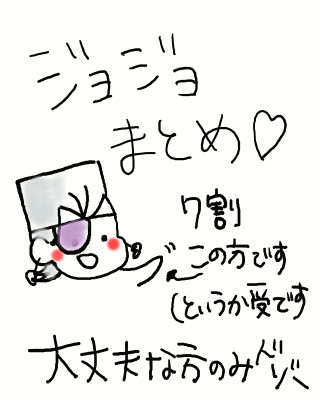 ジョジョ
まとめ♡
7割
この方です
(というか受です
大丈夫な方のみドゾ